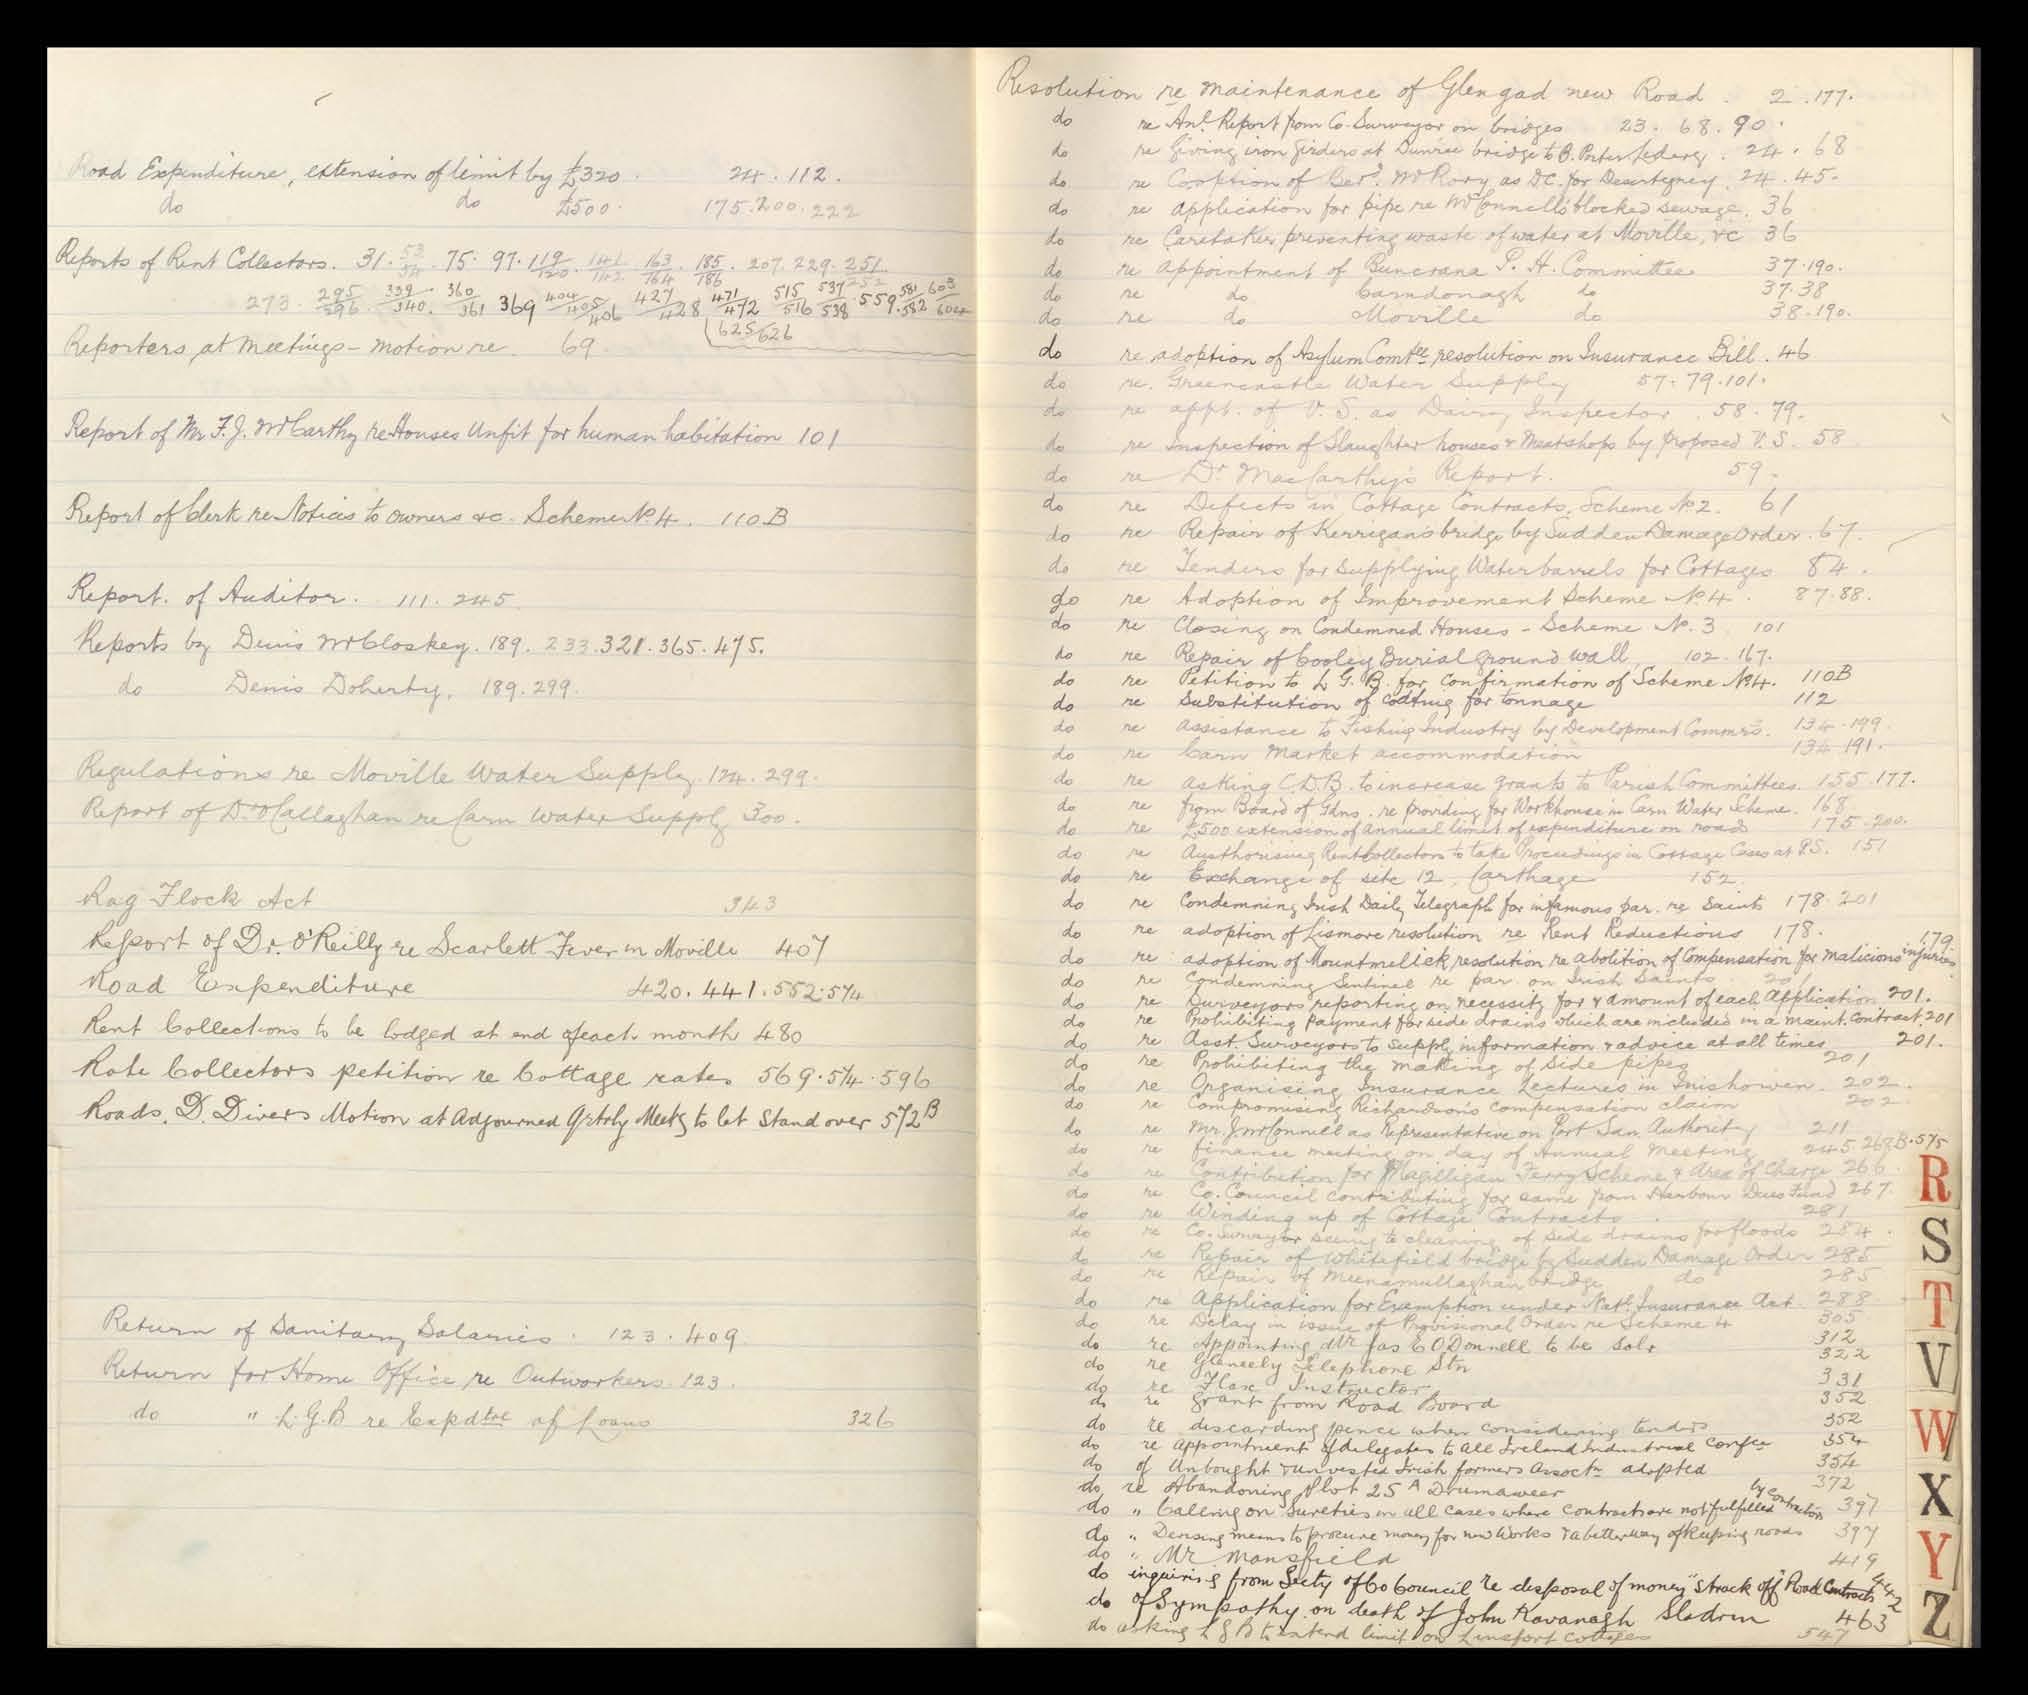 Road Expenditure, extension of limit by £320. 24. 112.
do do £500. 175. 200. 222
Reports of Rent Collectors. 31. 53/54. 75. 97. 119/120. 141/142. 163/164. 185/186. 207. 229. 251/252
273. 295/296. 339/340. 360/361 369 404/405/406 427/428 471/472 515/516 537/538. 559. 581/582 603/604
625/626
Reporters, at meetings - motion re. 69
Report of Mr F. J. McCarthy re Houses Unfit for human habitation 101
Report of Clerk re Notices to owners &c. Scheme No. 4. 110B
Report. of Auditor. 111. 245.
Reports by Denis McCloskey. 189. 233. 321. 365. 475.
do Denis Doherty. 189. 299.
Regulations re Moville Water Supply. 124. 299.
Report of Dr O'Callaghan re Carn Water Supply 300.
Rag Flock Act 343
Report of Dr. O'Reilly re Scarlett Fever in Moville 407
Road Expenditure 420. 441. 552. 574
Rent Collections to be lodged at end of each month 480
Rate Collectors petition re Cottage rates 569. 574. 596
Roads. D. Divers Motion at Adjourned Qrtrly Meetg to let stand over 572B
Return of Sanitary Salaries. 123. 409.
Return for Home Office re Outworkers. 123.
do " L.G.B re Expdtre of Loans 326
Resolution re maintenance of Glengad new Road. 2. 177.
do re Anl. Report from Co. Surveyor on bridges 23. 68. 90.
do re Giving iron girders at Dunree bridge to B. 24. 68
do re Cooption of Berd. McRory as DC. for Desertegney. 24. 45.
do re application for pipe re McConnell's blocked sewage. 36
do re Caretaker preventing waste of water at Moville, &c 36
do re appointment of Buncrana P. H. Committee 37. 190.
do re do Carndonagh do 37. 38
do re do Moville do 38. 190.
do re adoption of Asylum Comtee resolution on Insurance Bill. 46
do re. Greencastle Water Supply 57. 79. 101.
do re appt. of V. S. as Dairy Inspector. 58. 79.
do re Inspection of Slaughter houses & Meatshops by proposed V. S. 58
do re Dr MacCarthy's Report. 59.
do re Defects in Cottage Contracts, Scheme No 2. 61
do re Repair of Kerrigan's bridge by Sudden Damage Order. 67.
do re Tenders for supplying Waterbarrels for Cottages 84.
do re Adoption of Improvement Scheme No. 4 87. 88.
do re Closing on Condemned Houses - Scheme No. 3 101
do re Repair of Cooley Burial ground wall, 102. 167.
do re Petition to L. G. B. for confirmation of Scheme No 4. 110B
do re Substitution of for tonnage 112
do re assistance to Fishing Industry by Development Commrs. 134. 199.
do re Carn market accommodation 134 191.
do re asking C.D.B. to increase grants to Parish Committees. 155. 177.
do re from Board of Gdns. re providing for Workhouse in Carn Water Scheme. 168
do re £500 extension of annual limit of expenditure on roads 175. 200.
do re Authorising Rent Collectors to take Proceedings in Cottage Cases at P.S. 151
do re Exchange of site 12, Carthage 152
do re Condemning Irish Daily Telegraph for infamous par. re Saints 178. 201
do re adoption of Lismore resolution re Rent Reductions 178.
do re adoption of Mountmellick resolution re abolition of Compensation for malicious injuries 179.
do re Condemning Sentinel re par. on Irish Saints 201
do re Surveyors reporting on necessity for & amount of each application 201.
do re Prohibiting payment for side drains which are included in a maint. contract 201
do re Asst. Surveyors to supply information & advice at all times 201.
do re Prohibiting the making of side pipes 201
do re Organising Insurance Lectures in Inishowen. 202.
do re Compromising Richardson's compensation claim 202.
do re Mr. J. McConnell as Representative on Port San. Authority 211
do re finance meeting on day of Annual Meeting 245. 267B. 575
do re Contribution for Magilligan Ferry Scheme & Area of Charge 266.
do re Co. Council contributing for same from Harbour Dues Fund 267.
do re Winding up of Cottage Contracts. 281
do re Co. Surveyor seeing to cleaning of side drains for floods 284.
do re Repair of Whitefield bridge by Sudden Damage Order 285
do re Repair of Meenamullaghan bridge do 285
do re Application for Exemption under Natl. Insurance Act. 288
do re Delay in issue of Provisional Order re Scheme 4 305
do re Appointing Mr Jas E O'Donnell to be Solr 312
do re Gleneely Telephone Stn 322
do re Flax Instructor 331
do re grant from Road Board 352
do re discarding pence when considering tenders 352
do re appointment of delegates to All Ireland Industrial Confce 354
do of Unbought & Unvested Irish farmers Assoctn adopted 354
do re Abandoning Plot 25A Drumaweer 372
do " Calling on Sureties in all cases where contracts are not fulfilled by contractors 397
do " Devising means to procure money for new works & a better way of keeping roads 397
do " Mr Mansfield 419
do inquiring from Secty of Co Council re disposal of money "struck off" Road Contracts 442
do of Sympathy on death of John Kavanagh Sladrin 463
do asking L G B to extend limit on Linsfort cottages 547
R
S
T
V
W
X
Y
Z